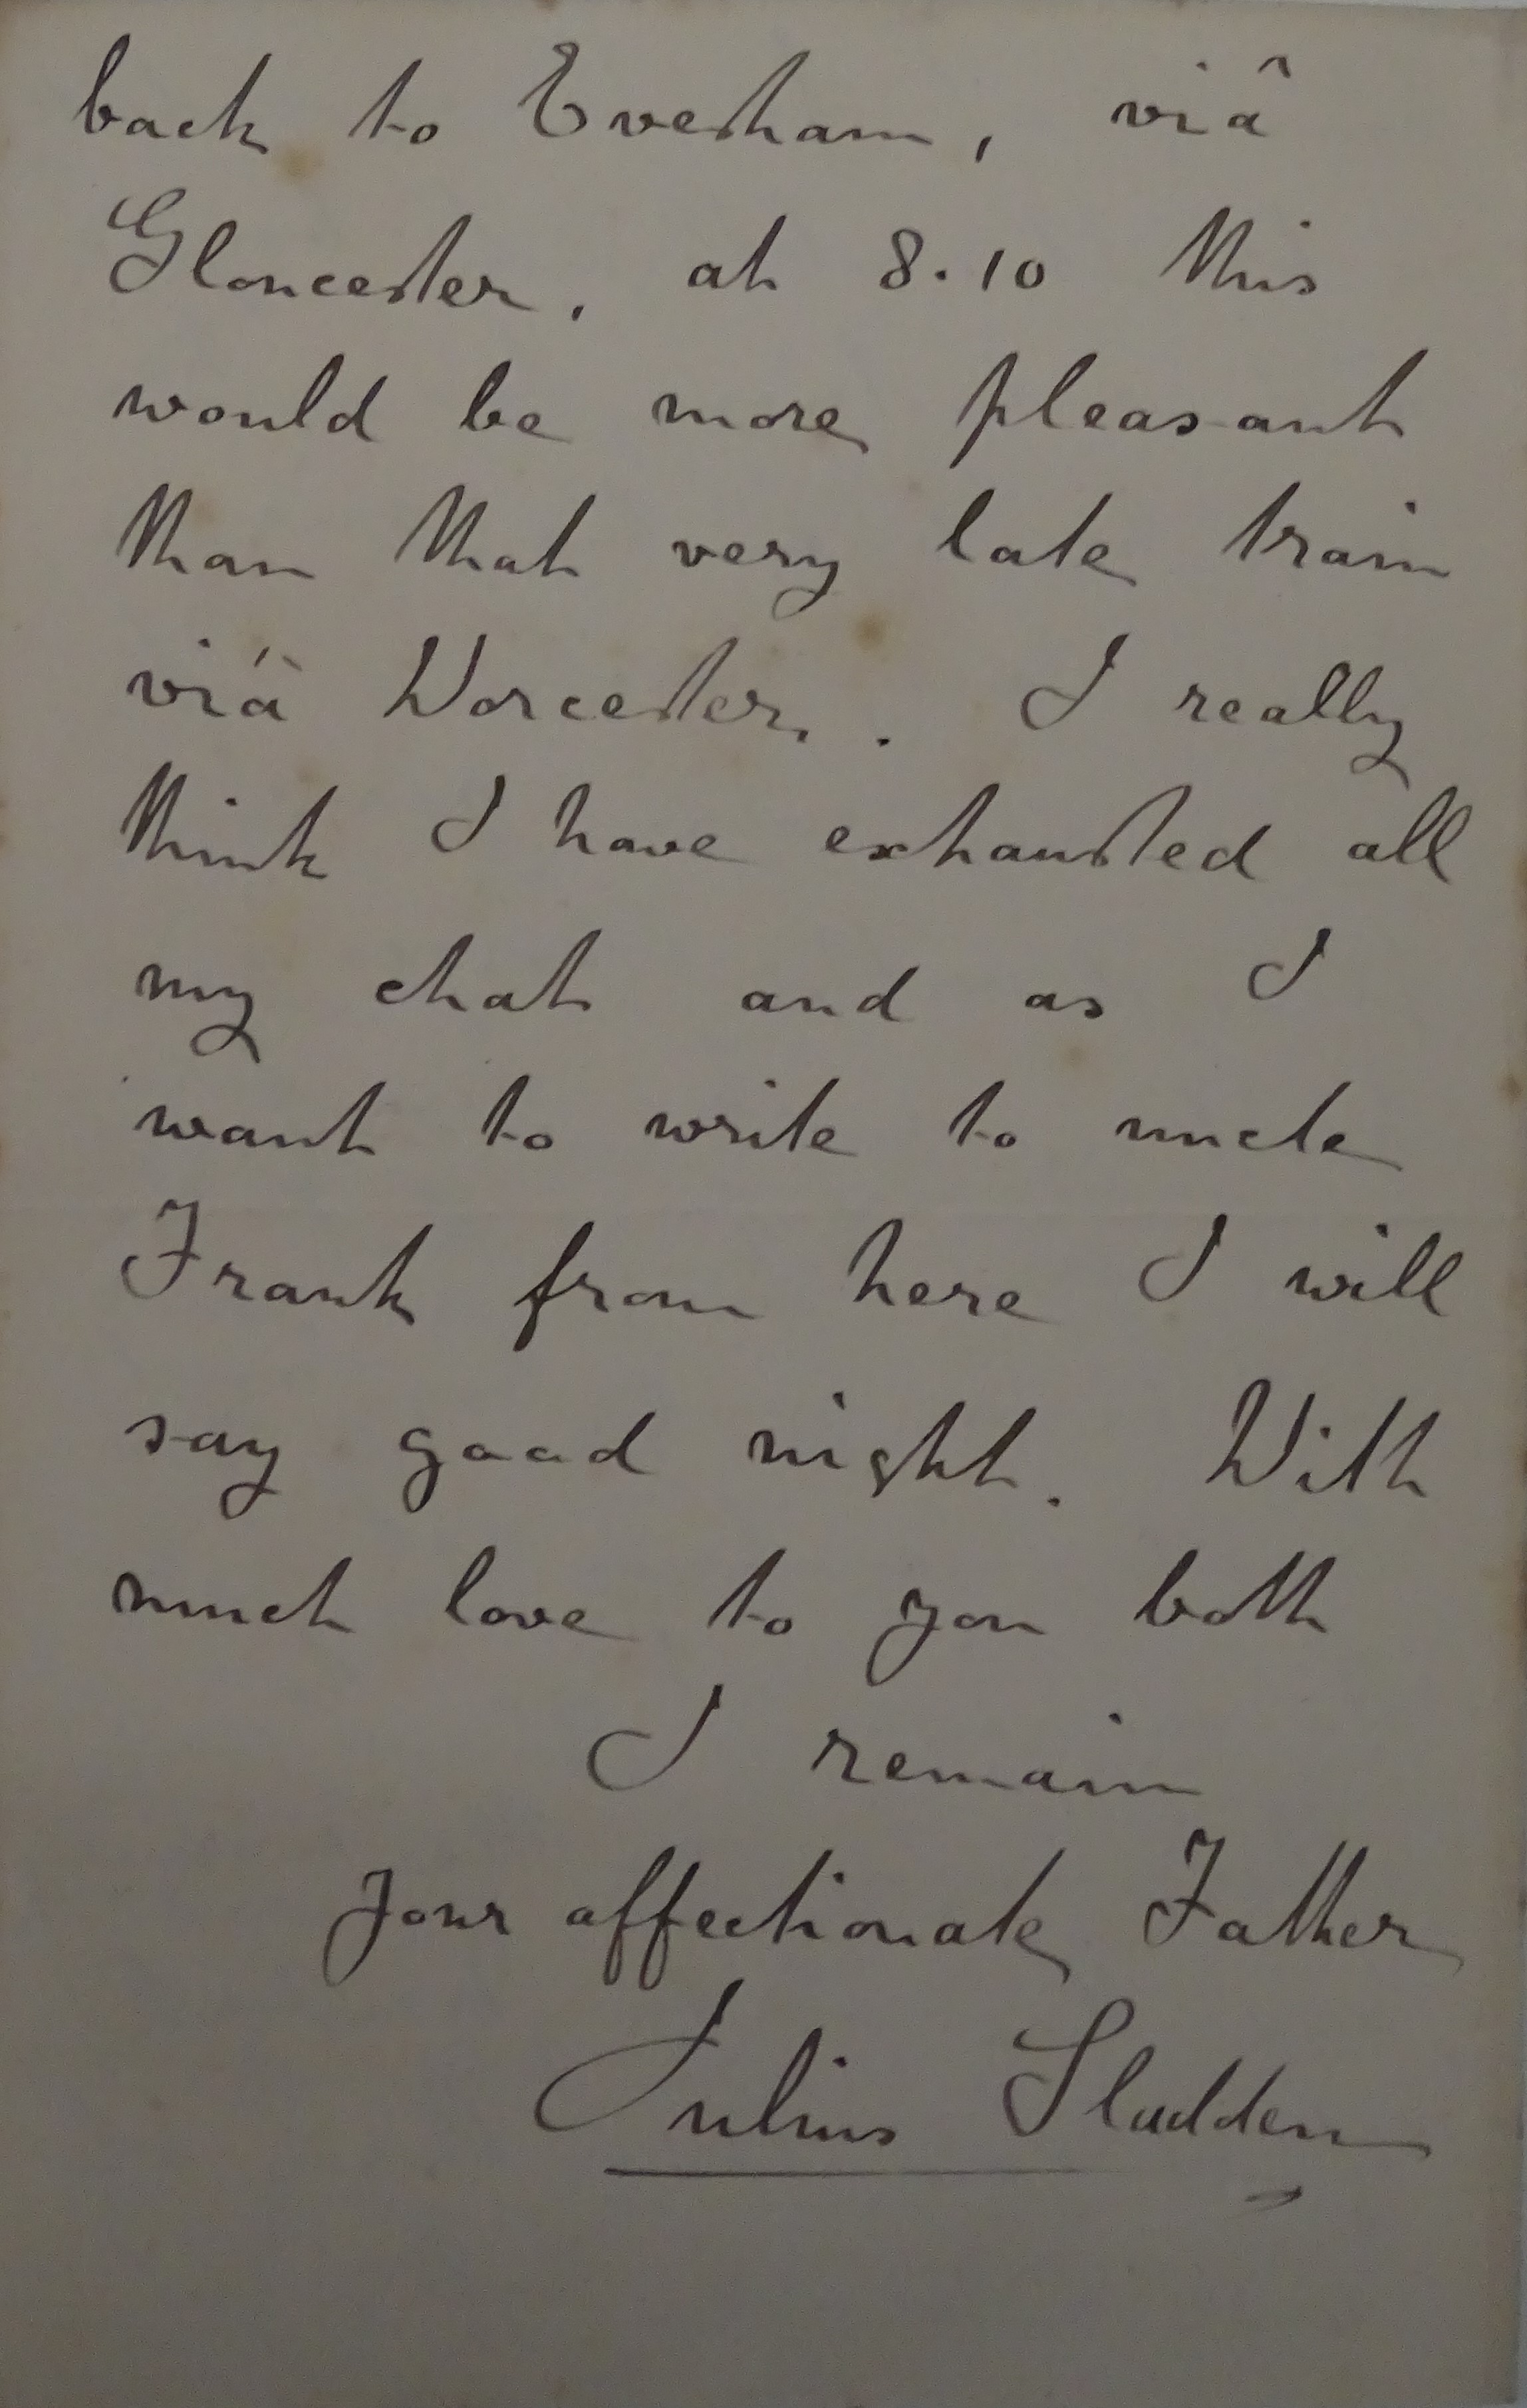 back to Evesham, viâ
Gloucester, at 8.10 this
would be more pleasant
than that very late train
viâ Worcester. I really
think I have exhausted all
my chat and as I
want to write to uncle
Frank from here I will
say good night. With
much love to you both
I remain
your affectionate Father
Julius Sladden